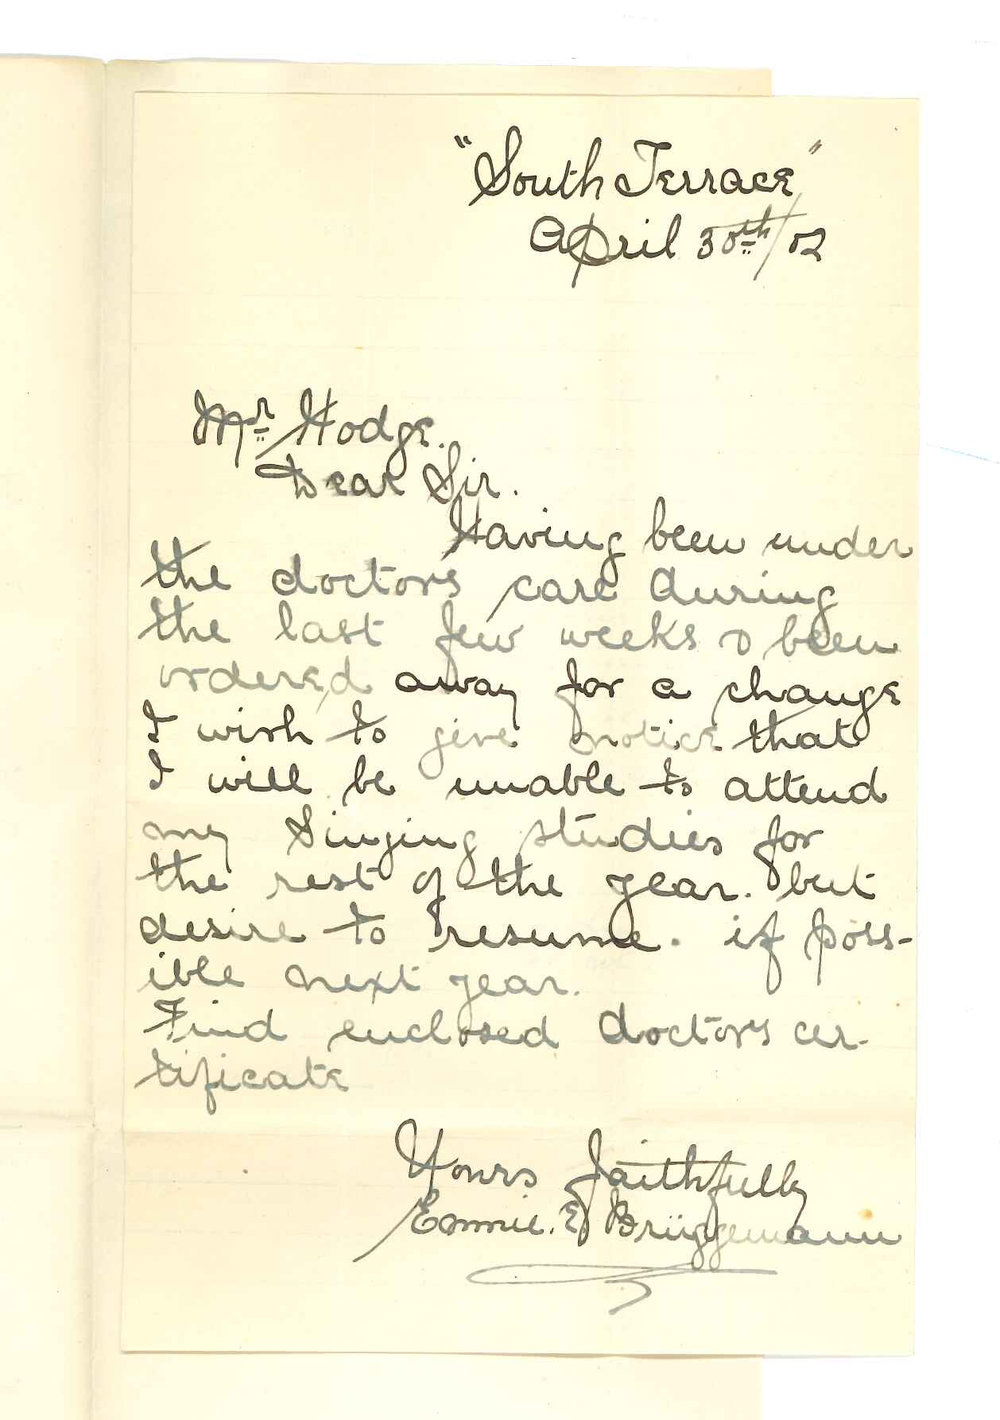 "South Terrace"
April 30th/02
Mr Hodge.
Dear Sir.
Having been under
the doctors care during
the last few weeks & been
ordered away for a change
I wish to give notice that
I will be unable to attend
my Singing studies for
the rest of the year. but
desire to resume. if poss-
ible next year.
Find enclosed doctors cer-
tificate
Yours faithfully
Emmie. E Brüggemann